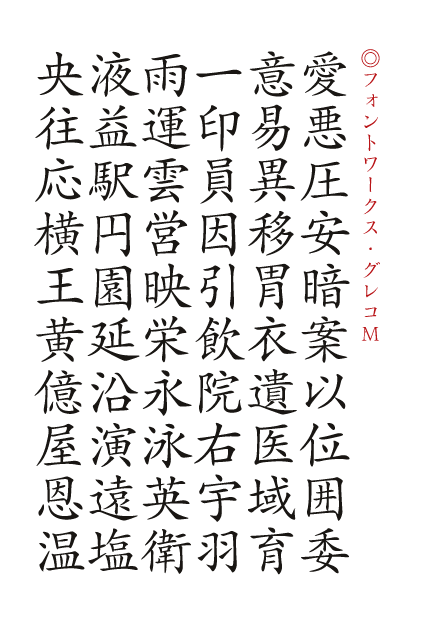 ◎フォントワークス・グレコM
愛悪圧安暗案以位囲委
意易異移胃衣遺医域育
一印員因引飲院右宇羽
雨運雲営映栄永泳英衛
液益駅円園延沿演遠塩
央往応横王黄億屋恩温